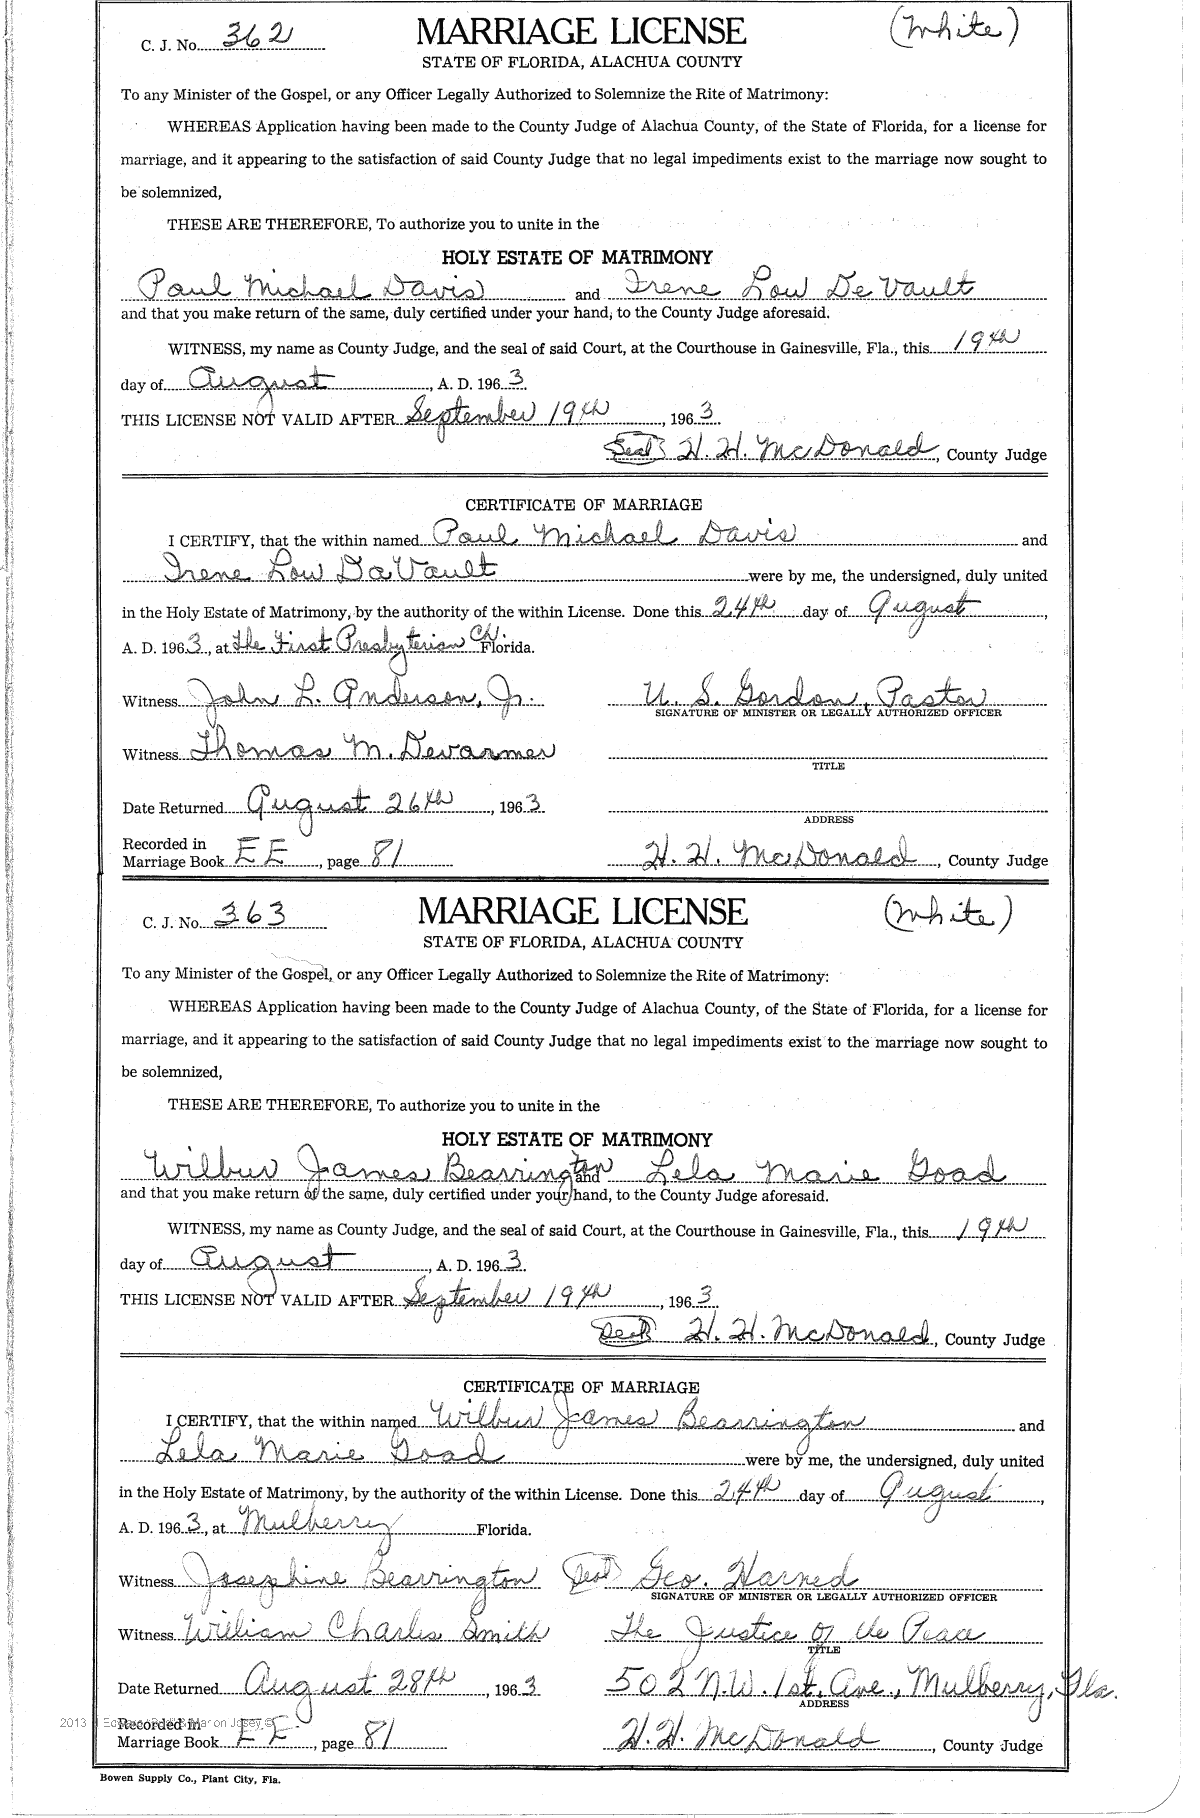 C. J. No. 362 MARRIAGE LICENSE (White)
STATE OF FLORIDA, ALACHUA COUNTY
To any Minister of the Gospel, or any Officer Legally Authorized to Solemnize the Rite of Matrimony:
WHEREAS Application having been made to the County Judge of Alachua County, of the State of Florida, for a license for
marriage, and it appearing to the satisfaction of said County Judge that no legal impediments exist to the marriage now sought to
be solemnized,
THESE ARE THEREFORE, To authorize you to unite in the
HOLY ESTATE OF MATRIMONY
Paul Michael Davis and Irene Low De Vault
and that you make return of the same, duly certified under your hand, to the County Judge aforesaid.
WITNESS, my name as County Judge, and the seal of said Court, at the Courthouse in Gainesville, Fla., this 19th
day of August, A. D. 1963.
THIS LICENSE NOT VALID AFTER September 19th, 1963.
Seal H. H. McDonald, County Judge
CERTIFICATE OF MARRIAGE
I CERTIFY, that the within named Paul Michael Davis and
Irene Low DaVault were by me, the undersigned, duly united
in the Holy Estate of Matrimony, by the authority of the within License. Done this 24th day of August,
A. D. 1963, at The First Presbyterian Ch. Florida.
Witness John L. Anderson, Jr. U. S. Gordon, Pastor
SIGNATURE OF MINISTER OR LEGALLY AUTHORIZED OFFICER
Witness Thomas M. Devarmer
TITLE
Date Returned August 26th, 1963.
ADDRESS
Recorded in
Marriage Book EE, page 81 H. H. McDonald, County Judge
C. J. No. 363 MARRIAGE LICENSE (White)
STATE OF FLORIDA, ALACHUA COUNTY
To any Minister of the Gospel, or any Officer Legally Authorized to Solemnize the Rite of Matrimony:
WHEREAS Application having been made to the County Judge of Alachua County, of the State of Florida, for a license for
marriage, and it appearing to the satisfaction of said County Judge that no legal impediments exist to the marriage now sought to
be solemnized,
THESE ARE THEREFORE, To authorize you to unite in the
HOLY ESTATE OF MATRIMONY
Wilbur James Bearrington and Lela Marie Goad
and that you make return of the same, duly certified under your hand, to the County Judge aforesaid.
WITNESS, my name as County Judge, and the seal of said Court, at the Courthouse in Gainesville, Fla., this 19th
day of August, A. D. 1963.
THIS LICENSE NOT VALID AFTER September 19th, 1963.
Seal H. H. McDonald, County Judge
CERTIFICATE OF MARRIAGE
I CERTIFY, that the within named Wilbur James Bearrington and
Lela Marie Goad were by me, the undersigned, duly united
in the Holy Estate of Matrimony, by the authority of the within License. Done this 24th day of August,
A. D. 1963, at Mulberry Florida.
Witness Josephine Bearrington Seal Geo. Harned
SIGNATURE OF MINISTER OR LEGALLY AUTHORIZED OFFICER
Witness William Charles Smith The Justice of the Peace
TITLE
Date Returned August 28th, 1963 502 N.W. 1st. Ave., Mulberry, Fla.
ADDRESS
2013
Recorded in
Marriage Book EE, page 81 H. H. McDonald, County Judge
Bowen Supply Co., Plant City, Fla.